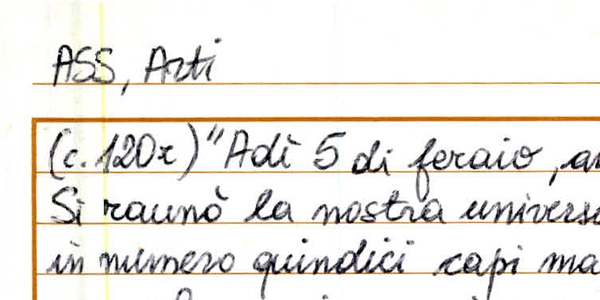 ASS, Arti
(c. 120r) "Adì 5 di feraio, an
Si raunò la nostra universi
in numero quindici capi ma